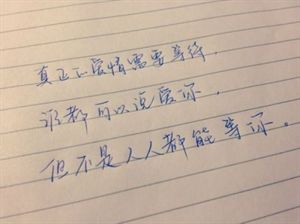 真正的爱情需要等待，
谁都可以说爱你，
但不是人人都能等你。